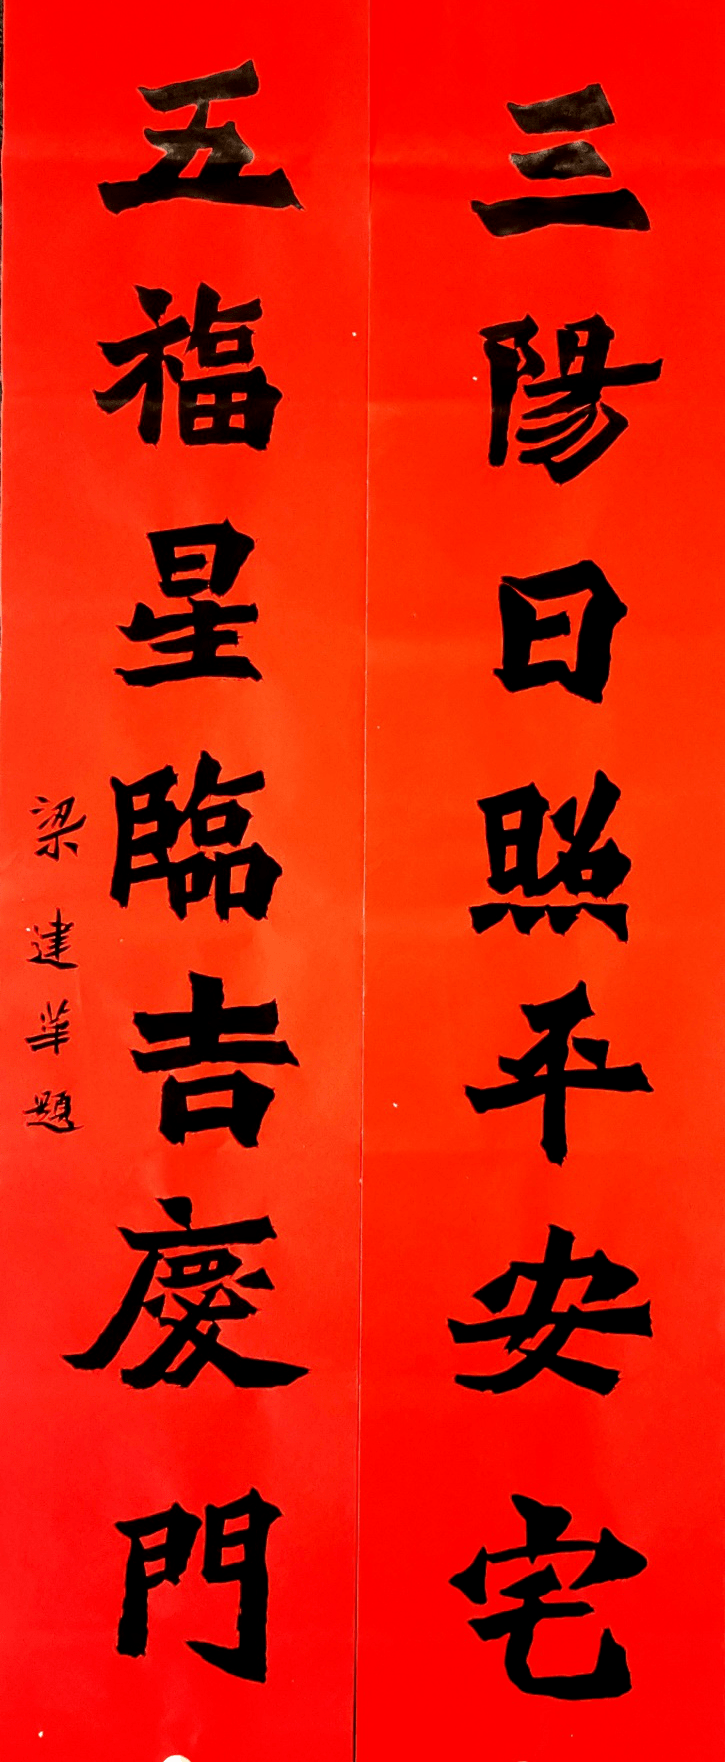 三陽日照平安宅
五福星臨吉慶門
梁建華題